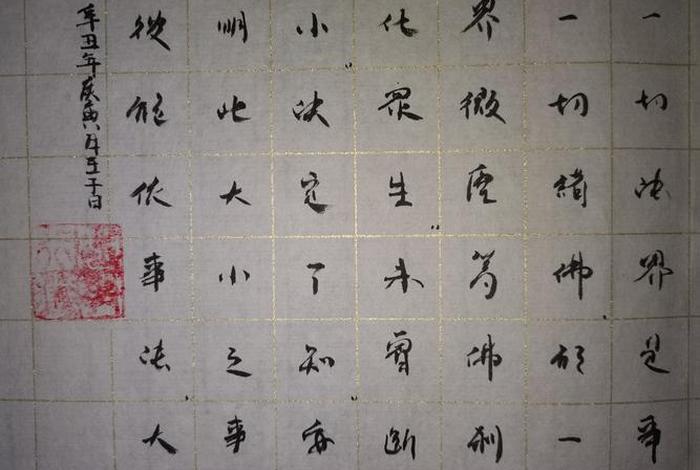 一切法界是
一切諸佛 一
界微塵等佛刹
化衆生未曾斷
小決定了知
明此大小之事
能依事法大
辛丑年庚寅八月壬子日